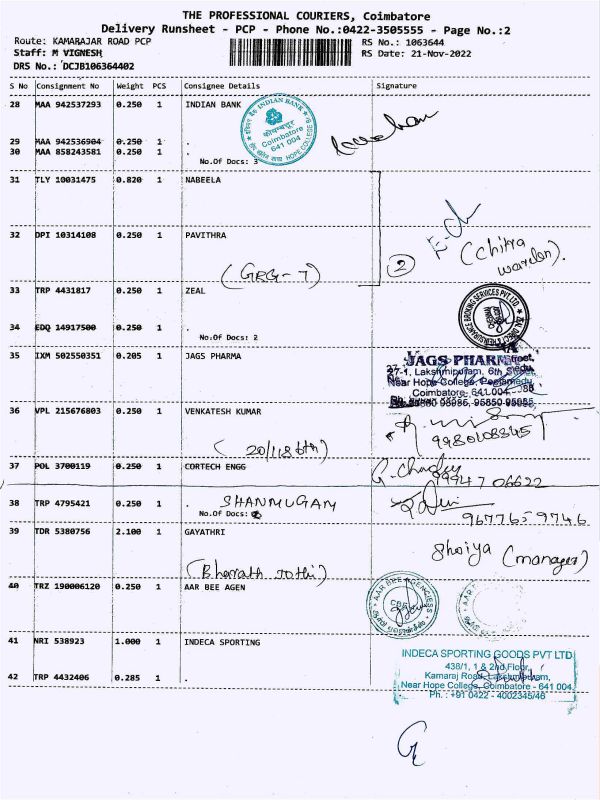 THE PROFESSIONAL COURIERS, Coimbatore
Delivery Runsheet - PCP - Phone No.:0422-3505555 - Page No.:2
Route: KAMARAJAR ROAD PCP
RS No.: 1063644
Staff: M VIGNESH
RS Date: 21-Nov-2022
DRS No.: DCJB106364402
S No Consignment No Weight PCS Consignee Details Signature
28 MAA 942537293 0.250 1 INDIAN BANK
INDIAN BANK
इंडियन बैंक
कोयम्बत्तूर
Coimbatore
641 004
HOPE COLLEGE
29 MAA 942536904 0.250 1 .
30 MAA 858243581 0.250 1 .
No.Of Docs: 3
31 TLY 10031475 0.820 1 NABEELA
32 DPI 10314108 0.250 1 PAVITHRA
(GRG - 7)
2
(Chitra
warden).
33 TRP 4431817 0.250 1 ZEAL
34 EDQ 14917500 0.250 1 .
No.Of Docs: 2
35 IXM 502550351 0.205 1 JAGS PHARMA
JAGS PHARMA
Lakshmipuram, 6th Street,
Near Hope College, Peelamedu
Coimbatore - 641 004.
36 VPL 215676803 0.250 1 VENKATESH KUMAR
(20/118 6th)
9980108345
37 POL 3700119 0.250 1 CORTECH ENGG
99947 06622
38 TRP 4795421 0.250 1 . SHANMUGAM
No.Of Docs: 2
9677659746
39 TDR 5380756 2.100 1 GAYATHRI
(Bharrath Jothi)
Shoiya (manager)
40 TRZ 190006120 0.250 1 AAR BEE AGEN
AAR BEE AGENCIESS
CBE
AAR
41 NRI 538923 1.000 1 INDECA SPORTING
INDECA SPORTING GOODS PVT LTD
438/1, 1 & 2nd Floor,
Kamaraj Road, Lakshmipuram,
Near Hope College, Coimbatore - 641 004.
Ph. : +91 0422 - 4002345/46
42 TRP 4432406 0.285 1 .